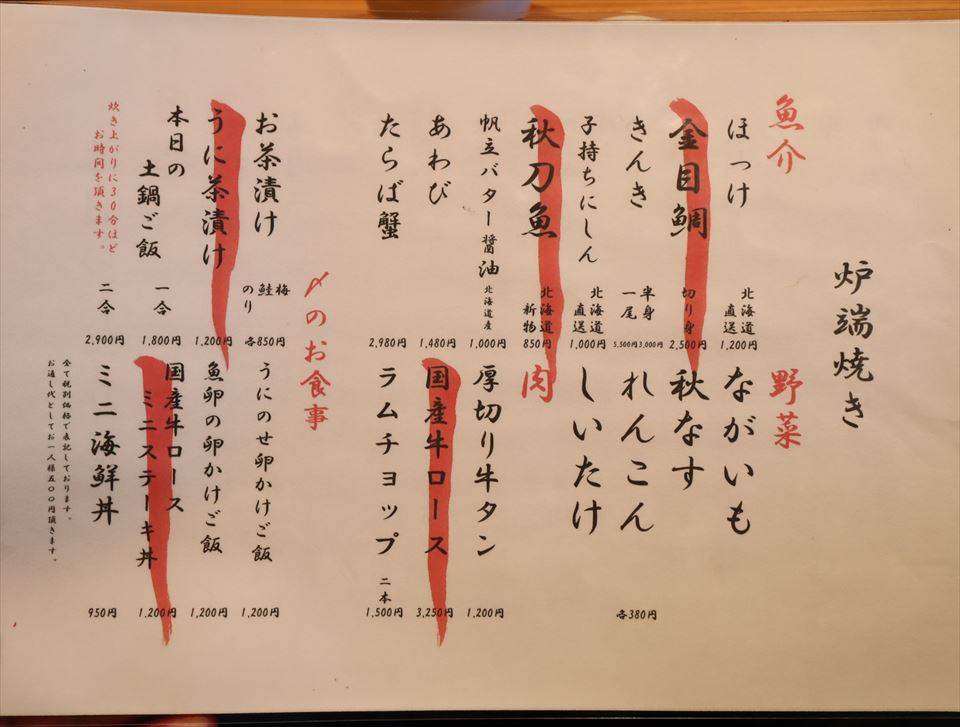 炉端焼き
魚介
ほっけ 北海道直送 1,200円
金目鯛 切り身 2,500円
きんき 半身 3,000円 一尾 5,500円
子持ちにしん 北海道直送 1,000円
秋刀魚 北海道新物 850円
帆立バター醤油 北海道産 1,000円
あわび 1,480円
たらば蟹 2,980円
野菜
ながいも
秋なす
れんこん
しいたけ
各380円
肉
厚切り牛タン 1,200円
国産牛ロース 3,250円
ラムチョップ 二本 1,500円
〆のお食事
お茶漬け 梅 鮭 のり 各850円
うに茶漬け 1,200円
本日の
土鍋ご飯 一合 1,800円
二合 2,900円
炊き上がりに30分ほど
お時間を頂きます。
うにのせ卵かけご飯 1,200円
魚卵の卵かけご飯 1,200円
国産牛ロース
ミニステーキ丼 1,200円
ミニ海鮮丼 950円
全て税別価格で表記しております。
お通し代としてお一人様五〇〇円頂きます。